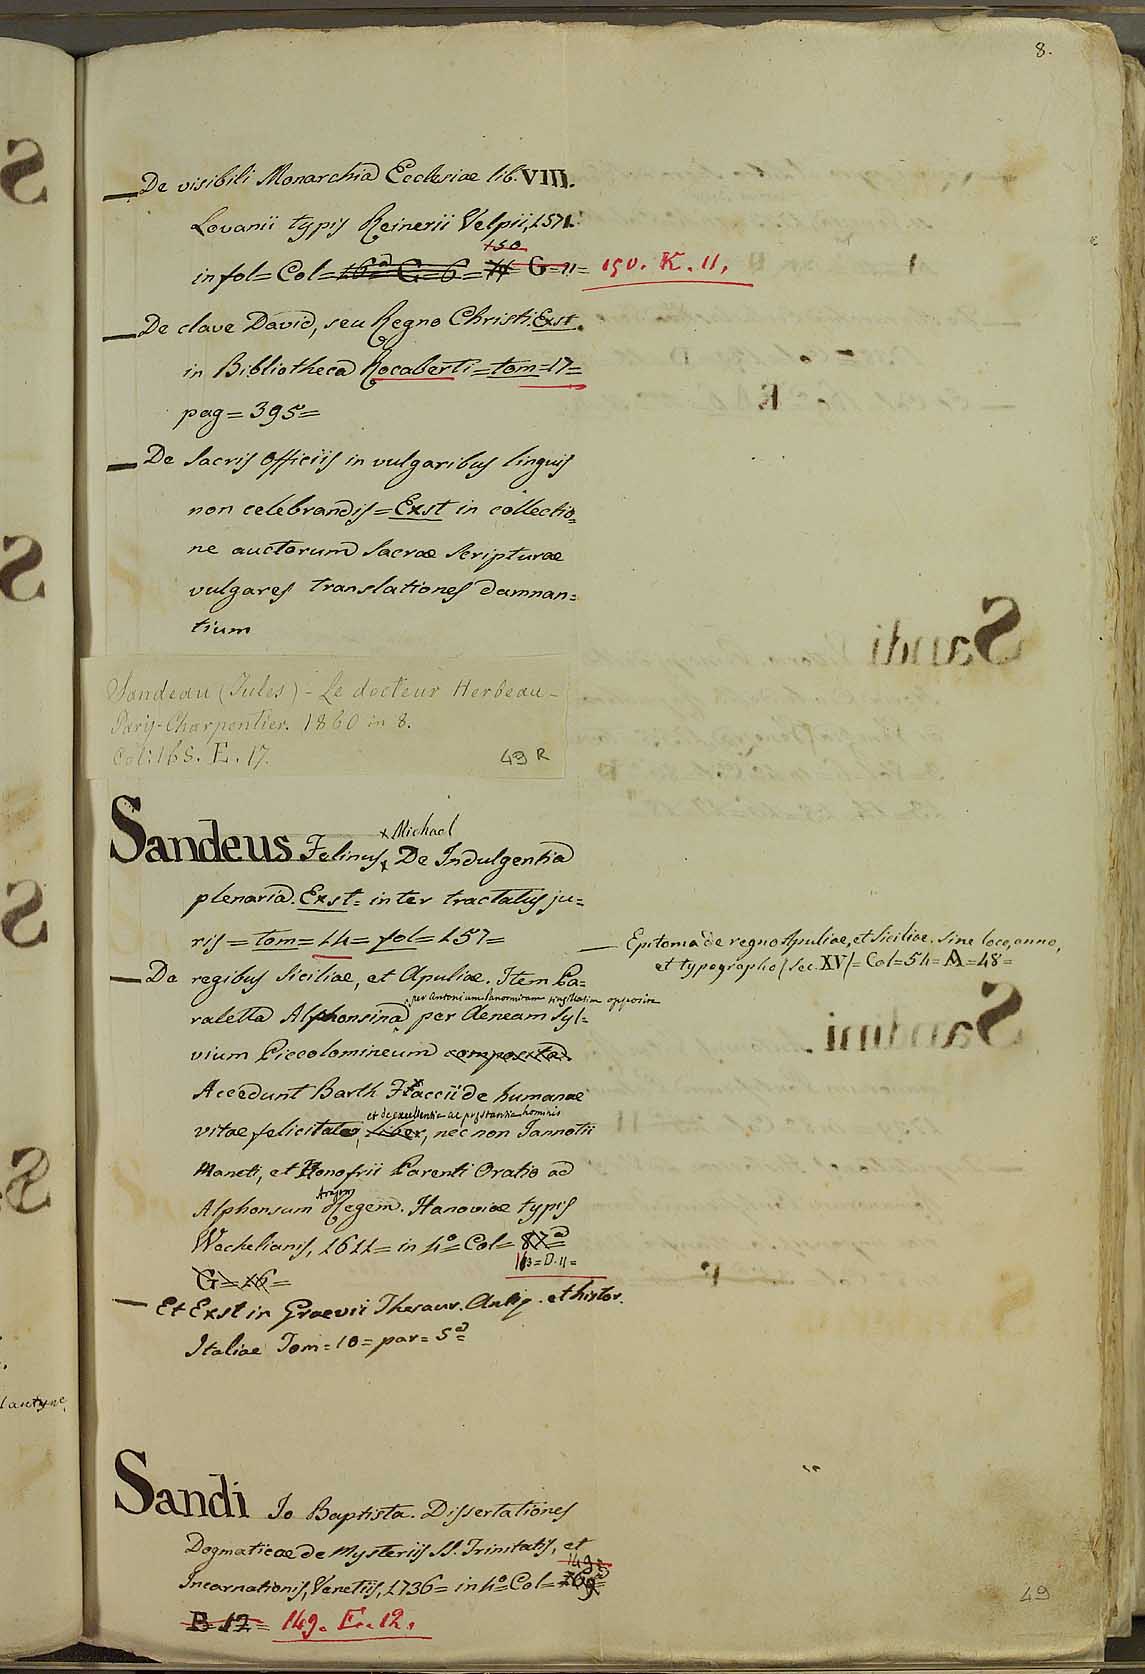 8.
— De visibili Monarchia Ecclesiae lib. VIII.
Lovanii typis Reinerii Velpii, 1571.
150
in fol = Col = 16a C = 6 = G = 11 = 150. K. 11.
— De clave David, seu Regno Christi. Exst.
in Bibliotheca Rocaberti = tom = 17 =
pag = 395 =
— De Sacris officiis in vulgaribus linguis
non celebrandis = Exst in collectio=
ne auctorum Sacrae Scripturae
vulgares translationes damnan=
tium
Sandeau (Jules) - Le docteur Herbeau -
Paris - Charpentier. 1860 in 8.
Col: 168. E. 17.
49 R
x Michael
Sandeus Felinus x De Indulgentia
plenaria. Exst = inter tractatus ju=
ris = tom = 14 = fol = 157 =
— Epitoma de regno Apuliae, et Siciliae. Sine loco, anno,
et typographo (Sec. XV) = Col = 54 = A = 48 =
— De regibus Siciliae, et Apuliae. Item Pa=
per Antonium Panormitam
ralella Alphonsina per Aeneam Syl=
vium Piccolomineum composita.
Accedunt Barth. Faccii de humanae
et de excellentia ac prestantia hominis
vitae felicitate, liber, nec non Jannotii
Maneti, et Honofrii Parenti Oratio ad
Aragon
Alphonsum Regem. Hanoviae typis
Wechelianis, 1611 = in 4o = Col = 87a
163 = D. 11 =
G = 16 =
— Et Exst in Graevii Thesaur. Antiq. et histor.
Italiae Tom = 10 = par = 5a =
Sandi Jo Baptista. Dissertationes
Dogmaticae de Mysteriis SS. Trinitatis, et
149 =
Incarnationis, Venetiis, 1736 = in 4o = Col = 169a
B 12 = 149. E. 12.
49
lantyne,